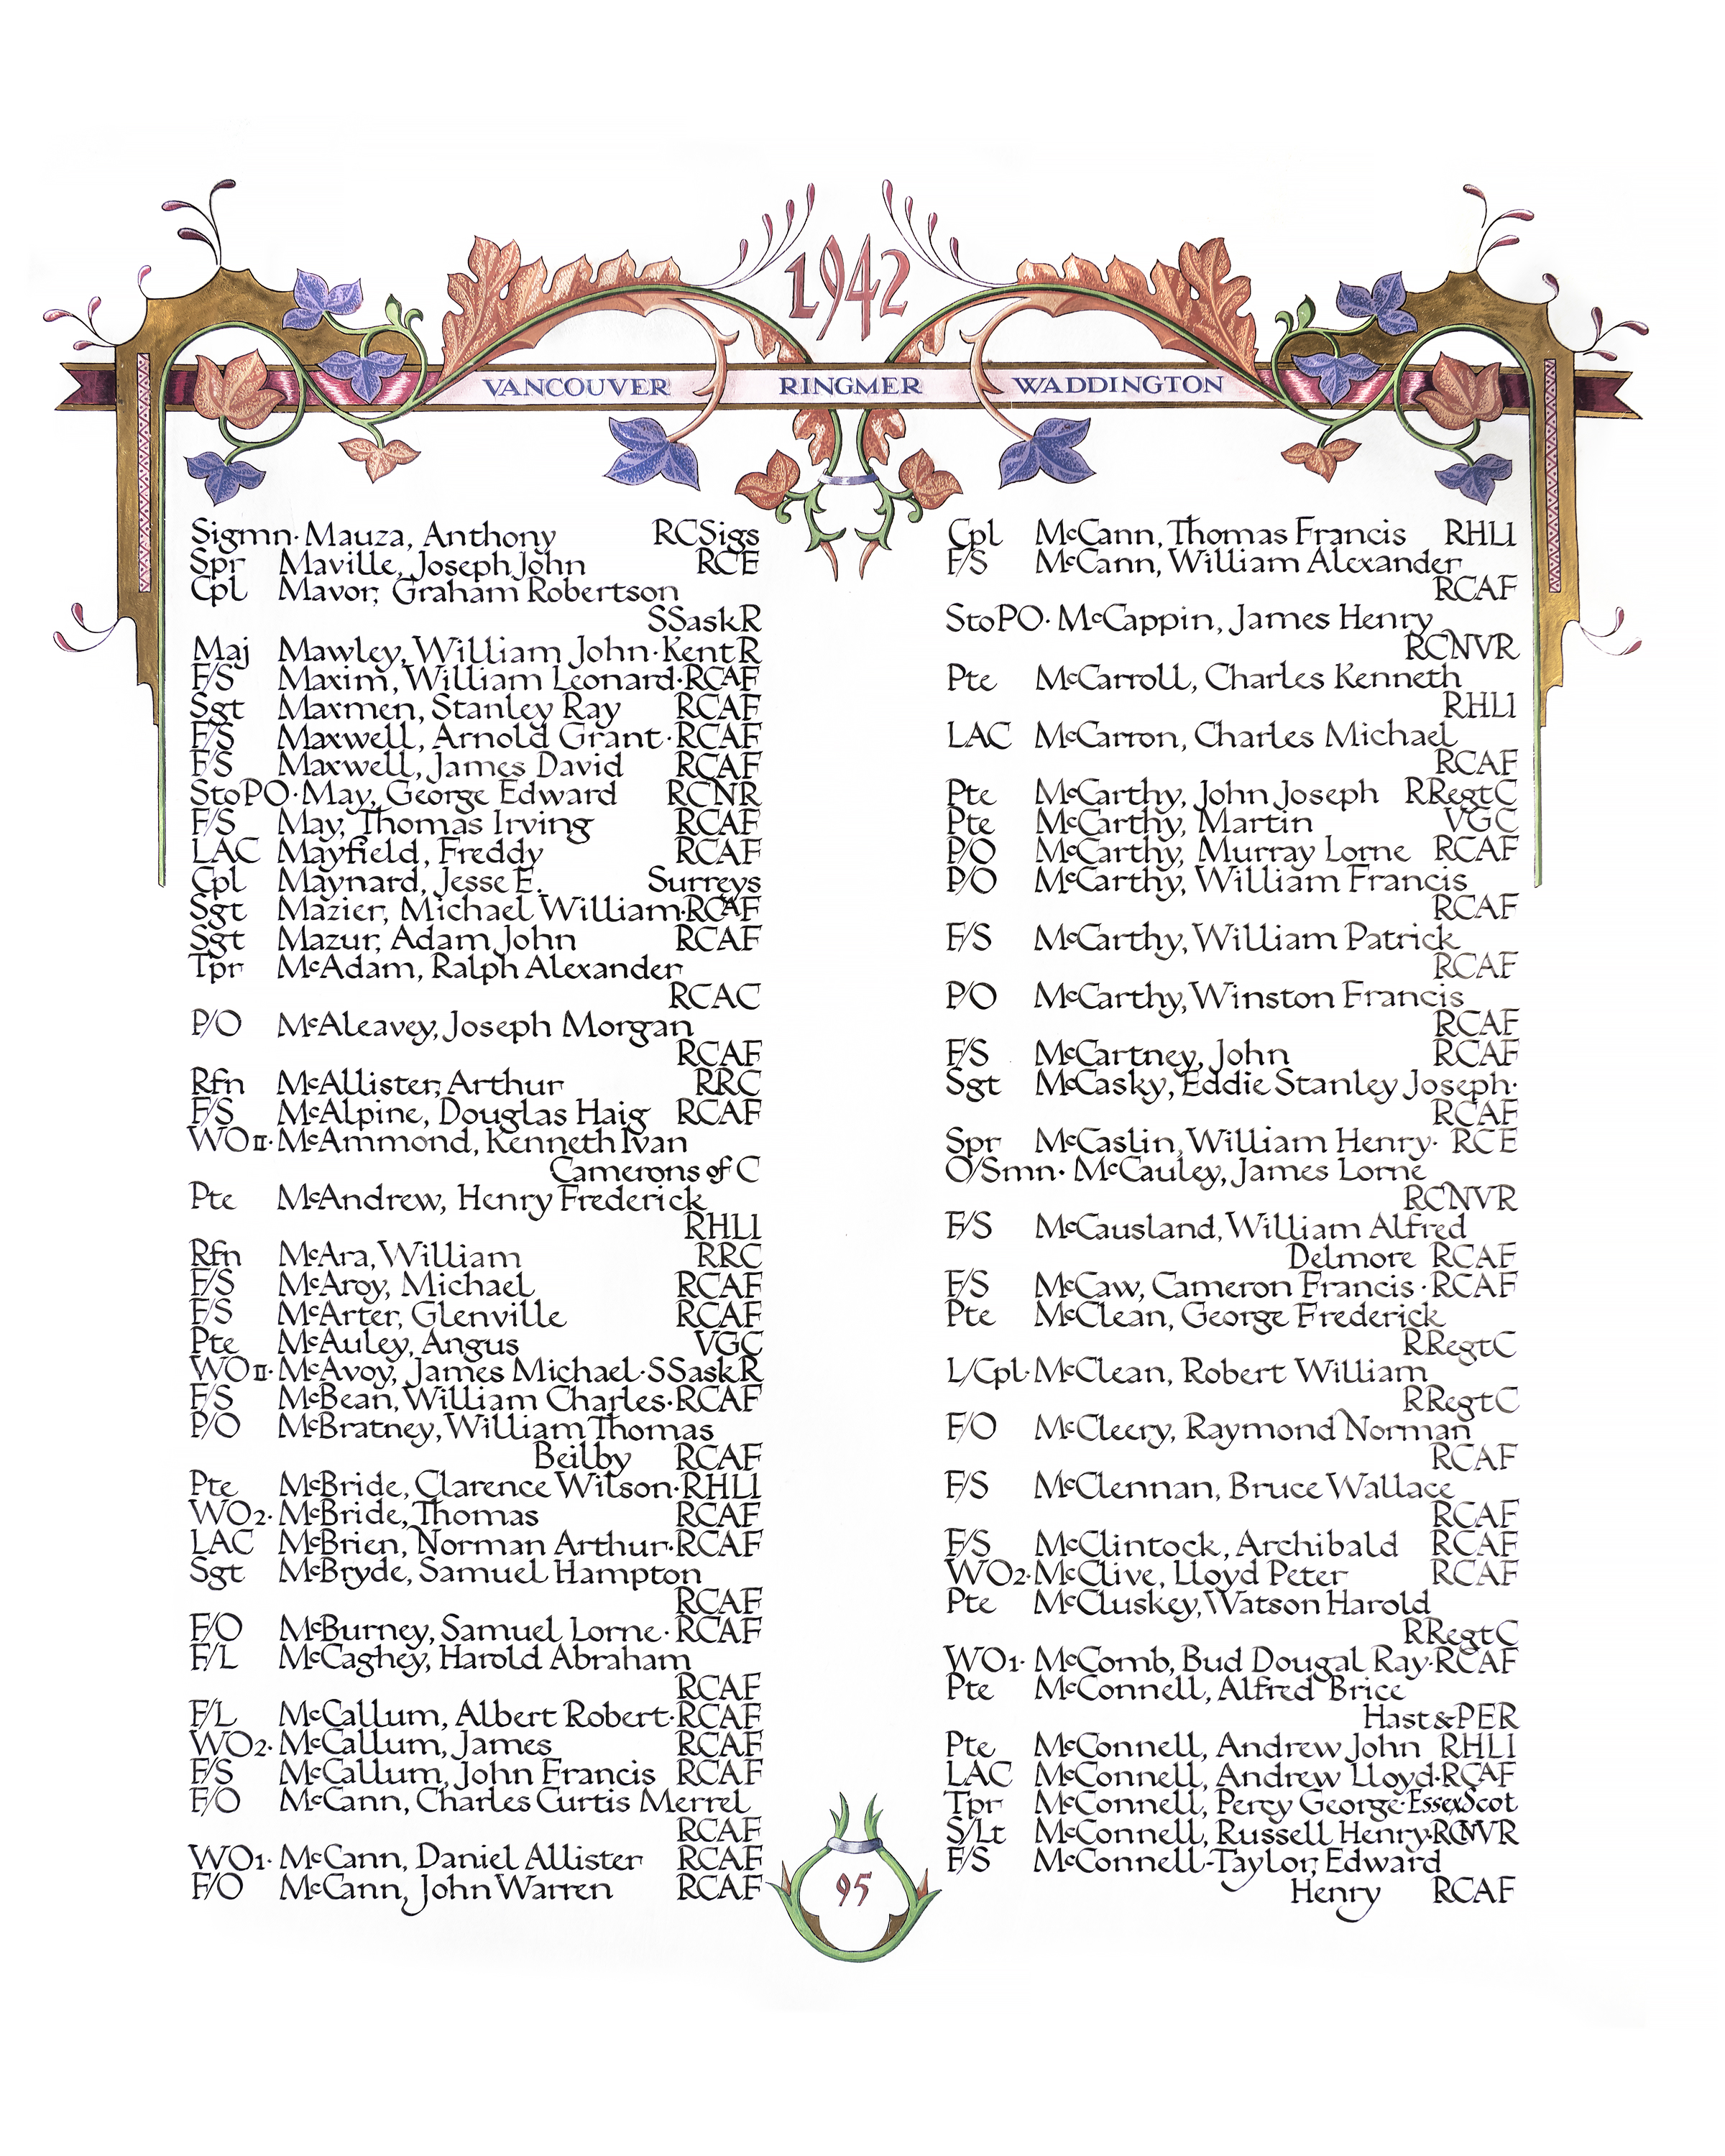 1942
VANCOUVER RINGMER WADDINGTON
Sigmn· Mauza, Anthony RCSigs
Spr Maville, Joseph John RCE
Cpl Mavor, Graham Robertson
SSaskR
Maj Mawley, William John·KentR
F/S Maxim, William Leonard·RCAF
Sgt Maxmen, Stanley Ray RCAF
F/S Maxwell, Arnold Grant·RCAF
F/S Maxwell, James David RCAF
StoPO·May, George Edward RCNR
F/S May, Thomas Irving RCAF
LAC Mayfield, Freddy RCAF
Cpl Maynard, Jesse E. Surreys
Sgt Mazier, Michael William·RCAF
Sgt Mazur, Adam John RCAF
Tpr McAdam, Ralph Alexander
RCAC
P/O McAleavey, Joseph Morgan
RCAF
Rfn McAllister, Arthur RRC
F/S McAlpine, Douglas Haig RCAF
WOII·McAmmond, Kenneth Ivan
Camerons of C
Pte McAndrew, Henry Frederick
RHLI
Rfn McAra, William RRC
F/S McAroy, Michael RCAF
F/S McArter, Glenville RCAF
Pte McAuley, Angus VGC
WOII·McAvoy, James Michael·SSaskR
F/S McBean, William Charles·RCAF
P/O McBratney, William Thomas
Beilby RCAF
Pte McBride, Clarence Wilson·RHLI
WO2·McBride, Thomas RCAF
LAC McBrien, Norman Arthur·RCAF
Sgt McBryde, Samuel Hampton
RCAF
F/O McBurney, Samuel Lorne·RCAF
F/L McCaghey, Harold Abraham
RCAF
F/L McCallum, Albert Robert·RCAF
WO2·McCallum, James RCAF
F/S McCallum, John Francis RCAF
F/O McCann, Charles Curtis Merrel
RCAF
WO1·McCann, Daniel Allister RCAF
F/O McCann, John Warren RCAF
Cpl McCann, Thomas Francis RHLI
F/S McCann, William Alexander
RCAF
StoPO·McCappin, James Henry
RCNVR
Pte McCarroll, Charles Kenneth
RHLI
LAC McCarron, Charles Michael
RCAF
Pte McCarthy, John Joseph RRegtC
Pte McCarthy, Martin VGC
P/O McCarthy, Murray Lorne RCAF
P/O McCarthy, William Francis
RCAF
F/S McCarthy, William Patrick
RCAF
P/O McCarthy, Winston Francis
RCAF
F/S McCartney, John RCAF
Sgt McCasky, Eddie Stanley Joseph·
RCAF
Spr McCaslin, William Henry· RCE
O/Smn·McCauley, James Lorne
RCNVR
F/S McCausland, William Alfred
Delmore RCAF
F/S McCaw, Cameron Francis·RCAF
Pte McClean, George Frederick
RRegtC
L/Cpl·McClean, Robert William
RRegtC
F/O McCleery, Raymond Norman
RCAF
F/S McClennan, Bruce Wallace
RCAF
F/S McClintock, Archibald RCAF
WO2·McClive, Lloyd Peter RCAF
Pte McCluskey, Watson Harold
RRegtC
WO1·McComb, Bud Dougal Ray·RCAF
Pte McConnell, Alfred Brice
Hast&PER
Pte McConnell, Andrew John RHLI
LAC McConnell, Andrew Lloyd·RCAF
Tpr McConnell, Percy George·EssexScot
S/Lt McConnell, Russell Henry·RCNVR
F/S McConnell-Taylor, Edward
Henry RCAF
95